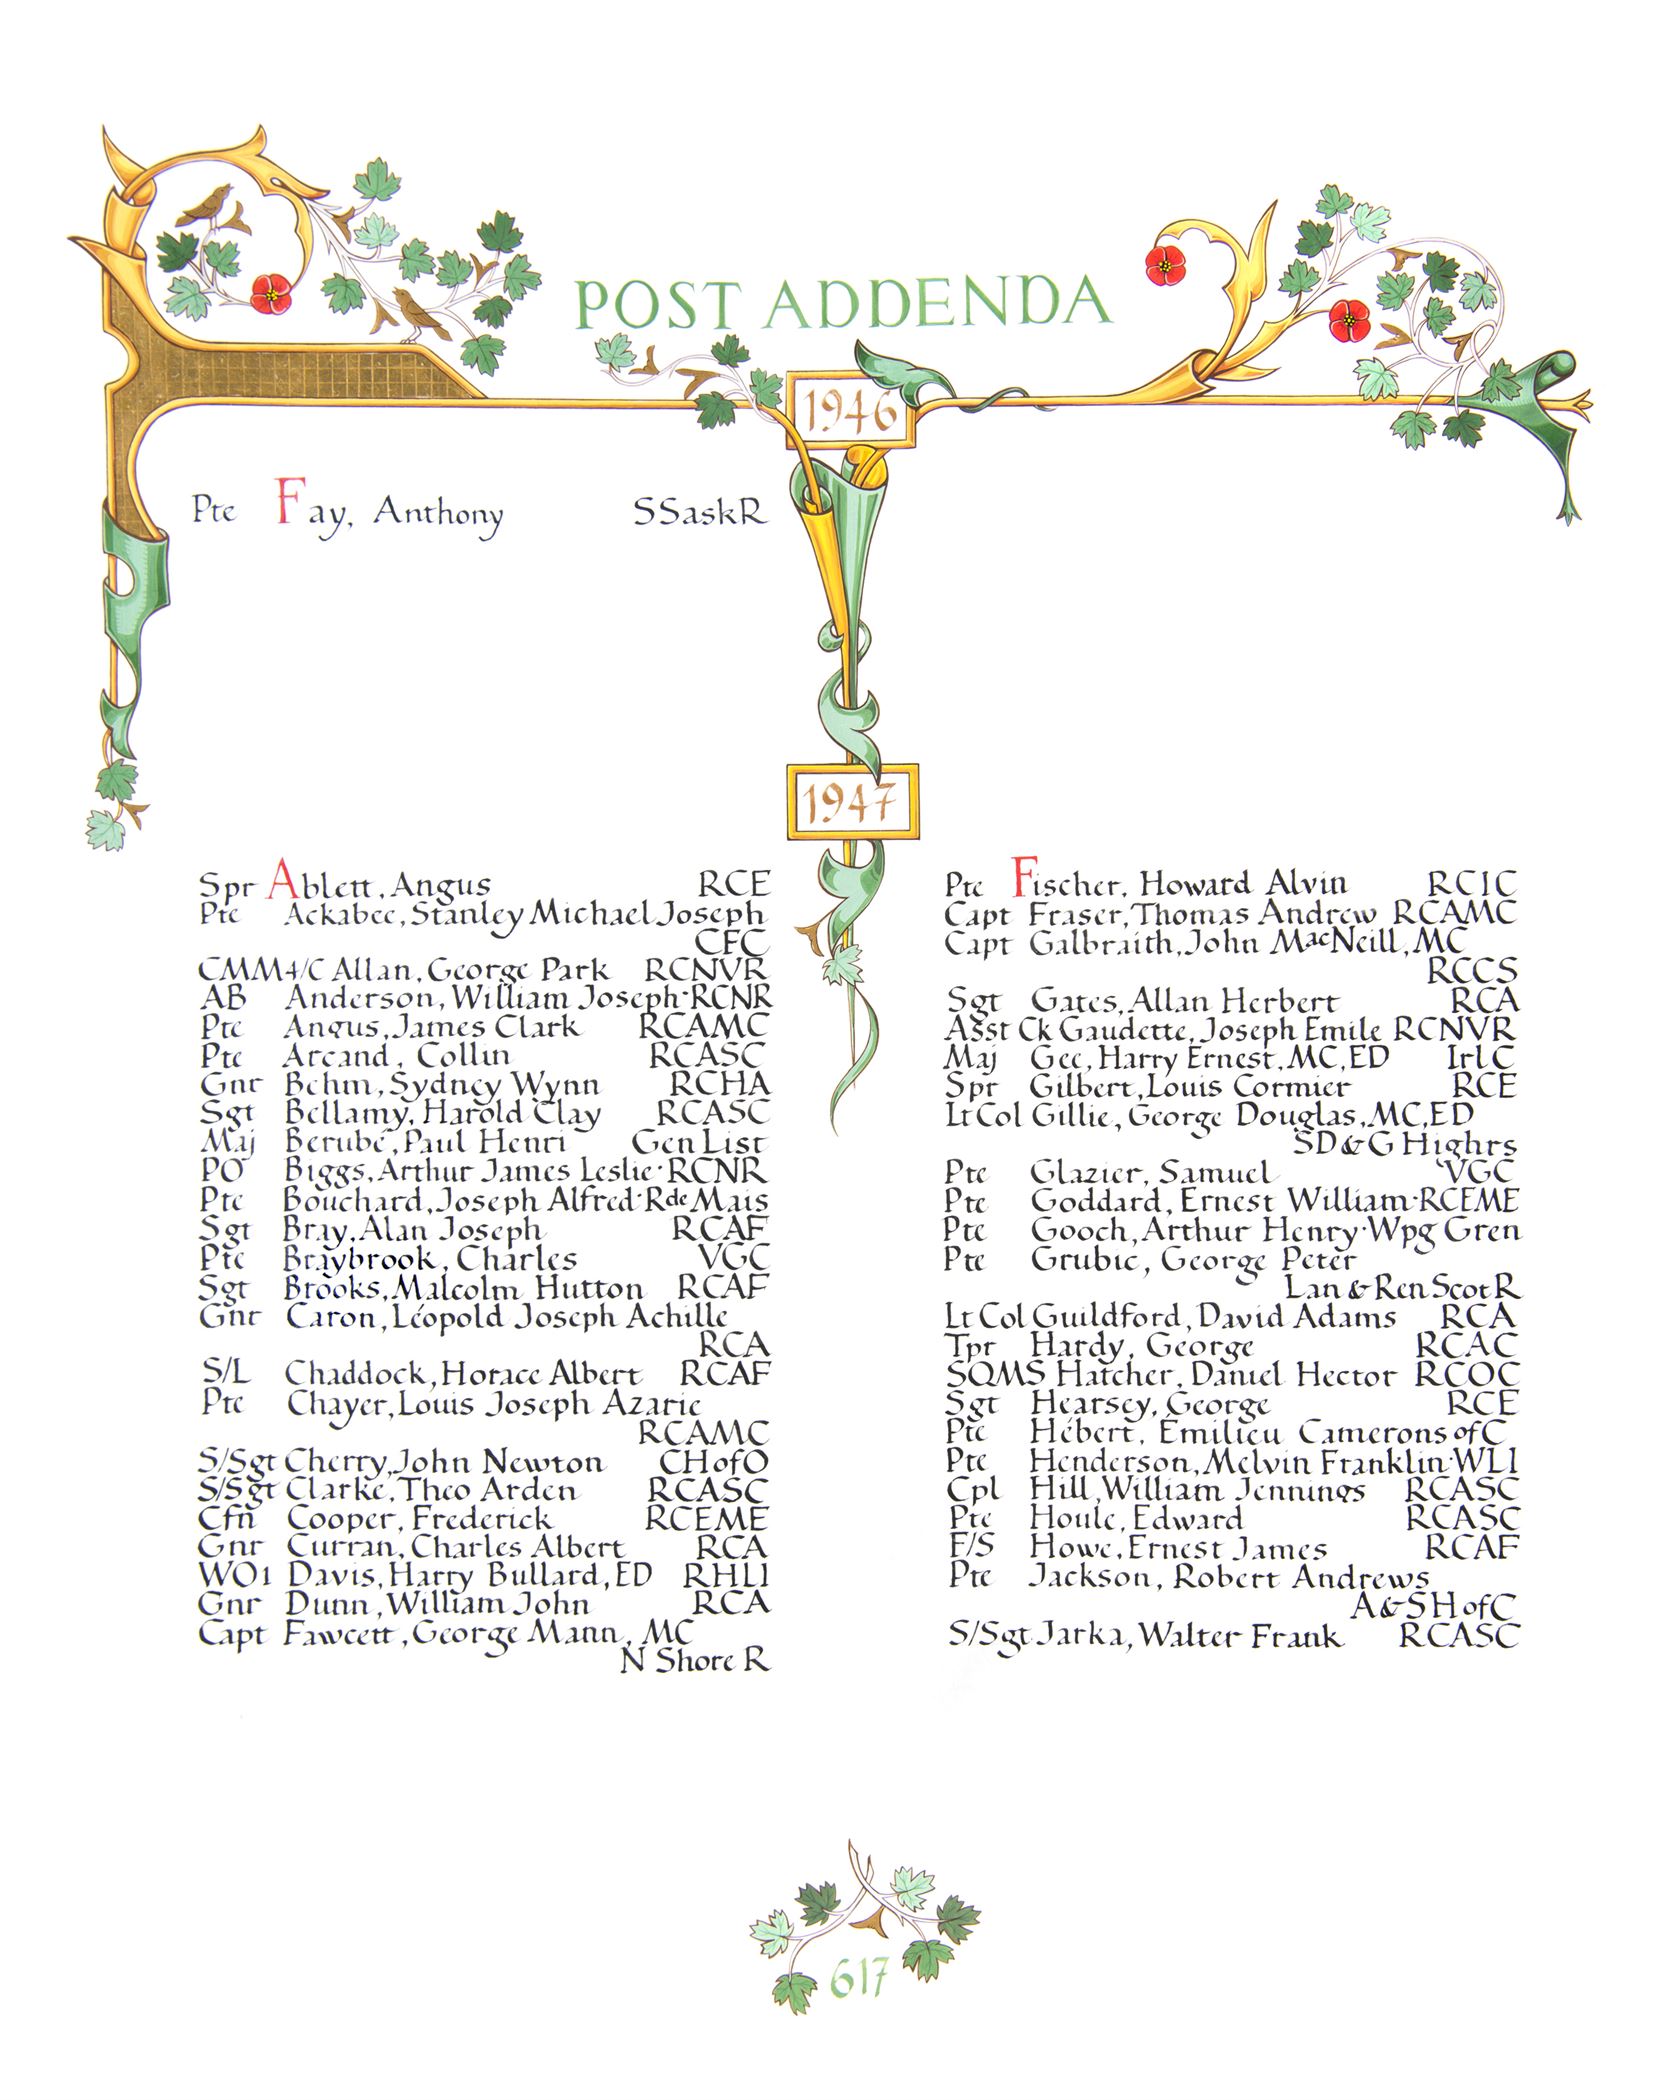 POST ADDENDA
1946
Pte Fay, Anthony SSaskR
1947
Spr Ablett, Angus RCE
Pte Ackabee, Stanley Michael Joseph
CFC
CMM4/C Allan, George Park RCNVR
AB Anderson, William Joseph·RCNR
Pte Angus, James Clark RCAMC
Pte Arcand, Collin RCASC
Gnr Behm, Sydney Wynn RCHA
Sgt Bellamy, Harold Clay RCASC
Maj Berubé, Paul Henri Gen List
PO Biggs, Arthur James Leslie·RCNR
Pte Bouchard, Joseph Alfred·R de Mais
Sgt Bray, Alan Joseph RCAF
Pte Braybrook, Charles VGC
Sgt Brooks, Malcolm Hutton RCAF
Gnr Caron, Léopold Joseph Achille
RCA
S/L Chaddock, Horace Albert RCAF
Pte Chayer, Louis Joseph Azarie
RCAMC
S/Sgt Cherry, John Newton CHofO
S/Sgt Clarke, Theo Arden RCASC
Cfn Cooper, Frederick RCEME
Gnr Curran, Charles Albert RCA
WO1 Davis, Harry Bullard, ED RHLI
Gnr Dunn, William John RCA
Capt Fawcett, George Mann, MC
N Shore R
Pte Fischer, Howard Alvin RCIC
Capt Fraser, Thomas Andrew RCAMC
Capt Galbraith, John MacNeill, MC
RCCS
Sgt Gates, Allan Herbert RCA
Asst Ck Gaudette, Joseph Emile RCNVR
Maj Gee, Harry Ernest, MC, ED IrlC
Spr Gilbert, Louis Cormier RCE
Lt Col Gillie, George Douglas, MC, ED
SD&G Highrs
Pte Glazier, Samuel VGC
Pte Goddard, Ernest William·RCEME
Pte Gooch, Arthur Henry·Wpg Gren
Pte Grubic, George Peter
Lan & Ren Scot R
Lt Col Guildford, David Adams RCA
Tpr Hardy, George RCAC
SQMS Hatcher, Daniel Hector RCOC
Sgt Hearsey, George RCE
Pte Hébert, Émilieu Camerons of C
Pte Henderson, Melvin Franklin·WLI
Cpl Hill, William Jennings RCASC
Pte Houle, Edward RCASC
F/S Howe, Ernest James RCAF
Pte Jackson, Robert Andrews
A&SH of C
S/Sgt Jarka, Walter Frank RCASC
617